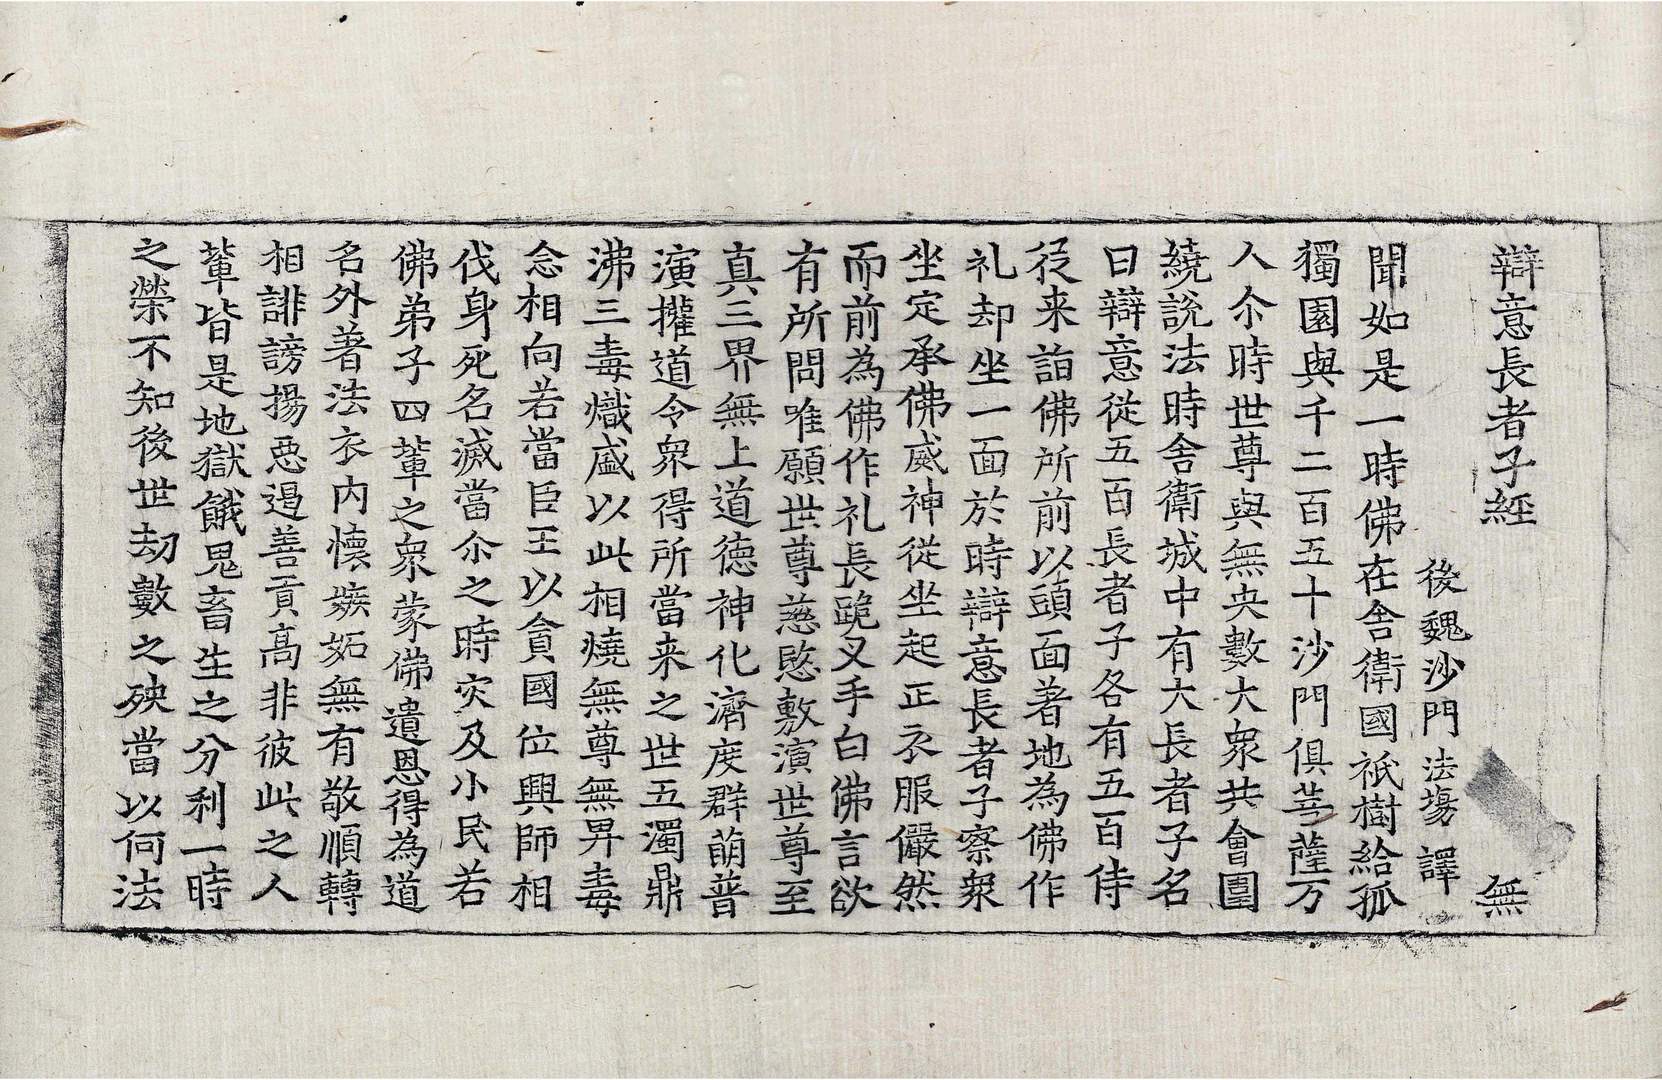 辯意長者子經 無
後魏沙門法場譯
聞如是一時佛在舍衛國祇樹給孤
獨園與千二百五十沙門俱菩薩万
人尒時世尊與無央數大衆共會圍
繞說法時舍衛城中有大長者子名
曰辯意從五百長者子各有五百侍
從来詣佛所前以頭面著地為佛作
礼却坐一面於時辯意長者子察衆
坐定承佛威神從坐起正衣服儼然
而前為佛作礼長跪叉手白佛言欲
有所問唯願世尊慈愍敷演世尊至
真三界無上道德神化濟度群萠普
演攡道令衆得所當来之世五濁鼎
沸三毒熾盛以此相燒無尊無畀毒
念相向若當臣王以貪國位興師相
伐身死名滅當尒之時灾及小民若
佛弟子四輩之衆蒙佛遺恩得為道
名外著法衣内懷嫉妬無有敬順轉
相誹謗揚惡遏善貢高非彼此之人
輩皆是地獄餓鬼畜生之分利一時
之榮不知後世劫數之殃當以何法